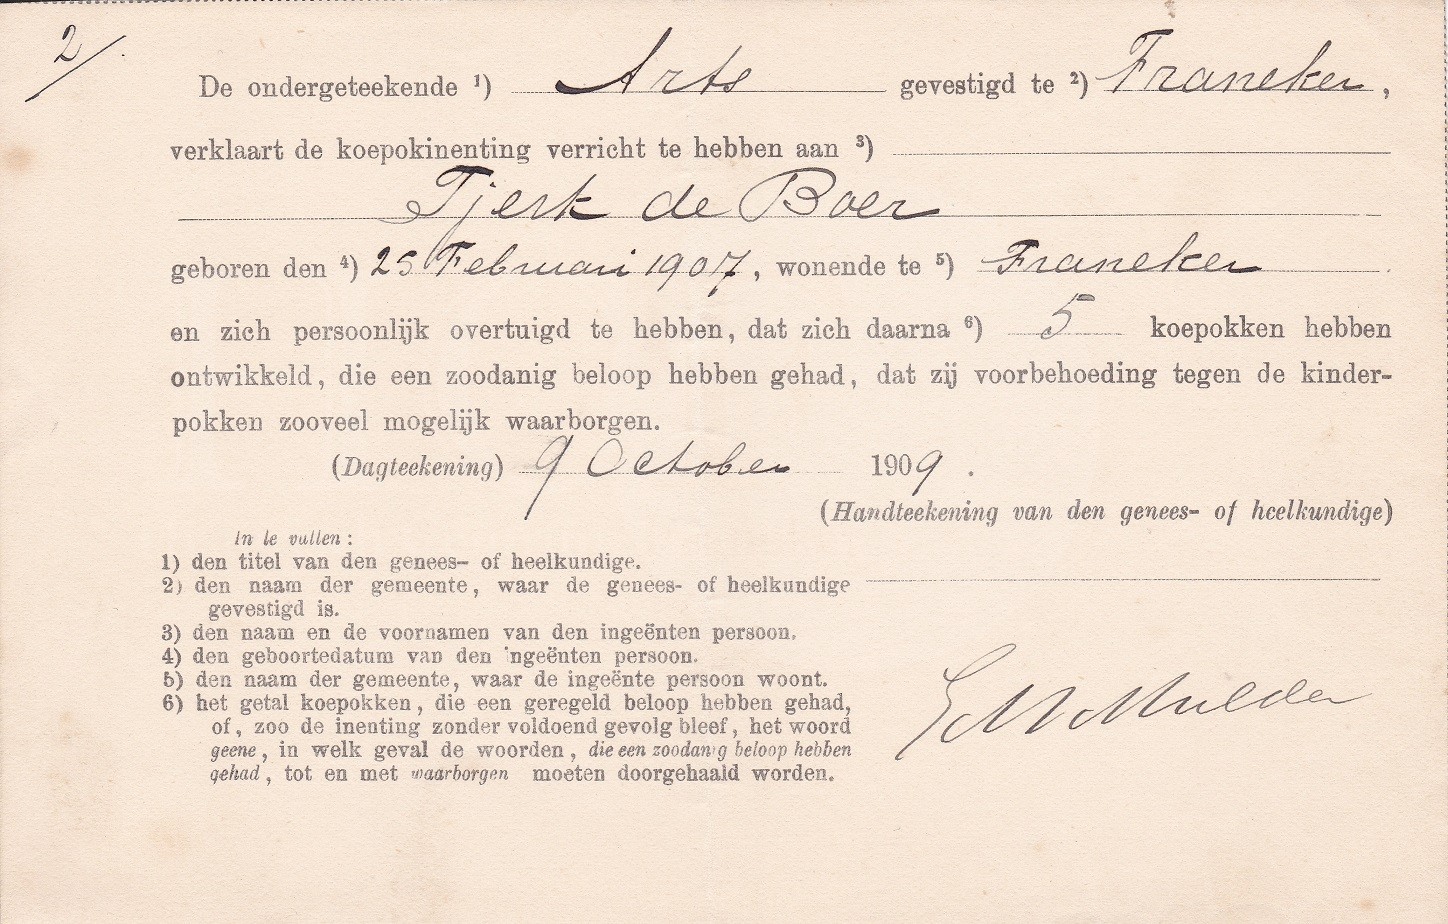 2/.
De ondergeteekende 1) Arts gevestigd te 2) Franeker,
verklaart de koepokinenting verricht te hebben aan 3)
Tjerk de Boer
geboren den 4) 25 Februari 1907, wonende te 5) Franeker
en zich persoonlijk overtuigd te hebben, dat zich daarna 6) 5 koepokken hebben
ontwikkeld, die een zoodanig beloop hebben gehad, dat zij voorbehoeding tegen de kinder-
pokken zooveel mogelijk waarborgen.
(Dagteekening) 9 October 1909.
(Handteekening van den genees- of heelkundige)
In te vullen:
1) den titel van den genees- of heelkundige.
2) den naam der gemeente, waar de genees- of heelkundige
gevestigd is.
3) den naam en de voornamen van den ingeënten persoon.
4) den geboortedatum van den ingeënten persoon.
5) den naam der gemeente, waar de ingeënte persoon woont.
6) het getal koepokken, die een geregeld beloop hebben gehad,
of, zoo de inenting zonder voldoend gevolg bleef, het woord
geene, in welk geval de woorden, die een zoodanig beloop hebben
gehad, tot en met waarborgen moeten doorgehaald worden.
Mulder